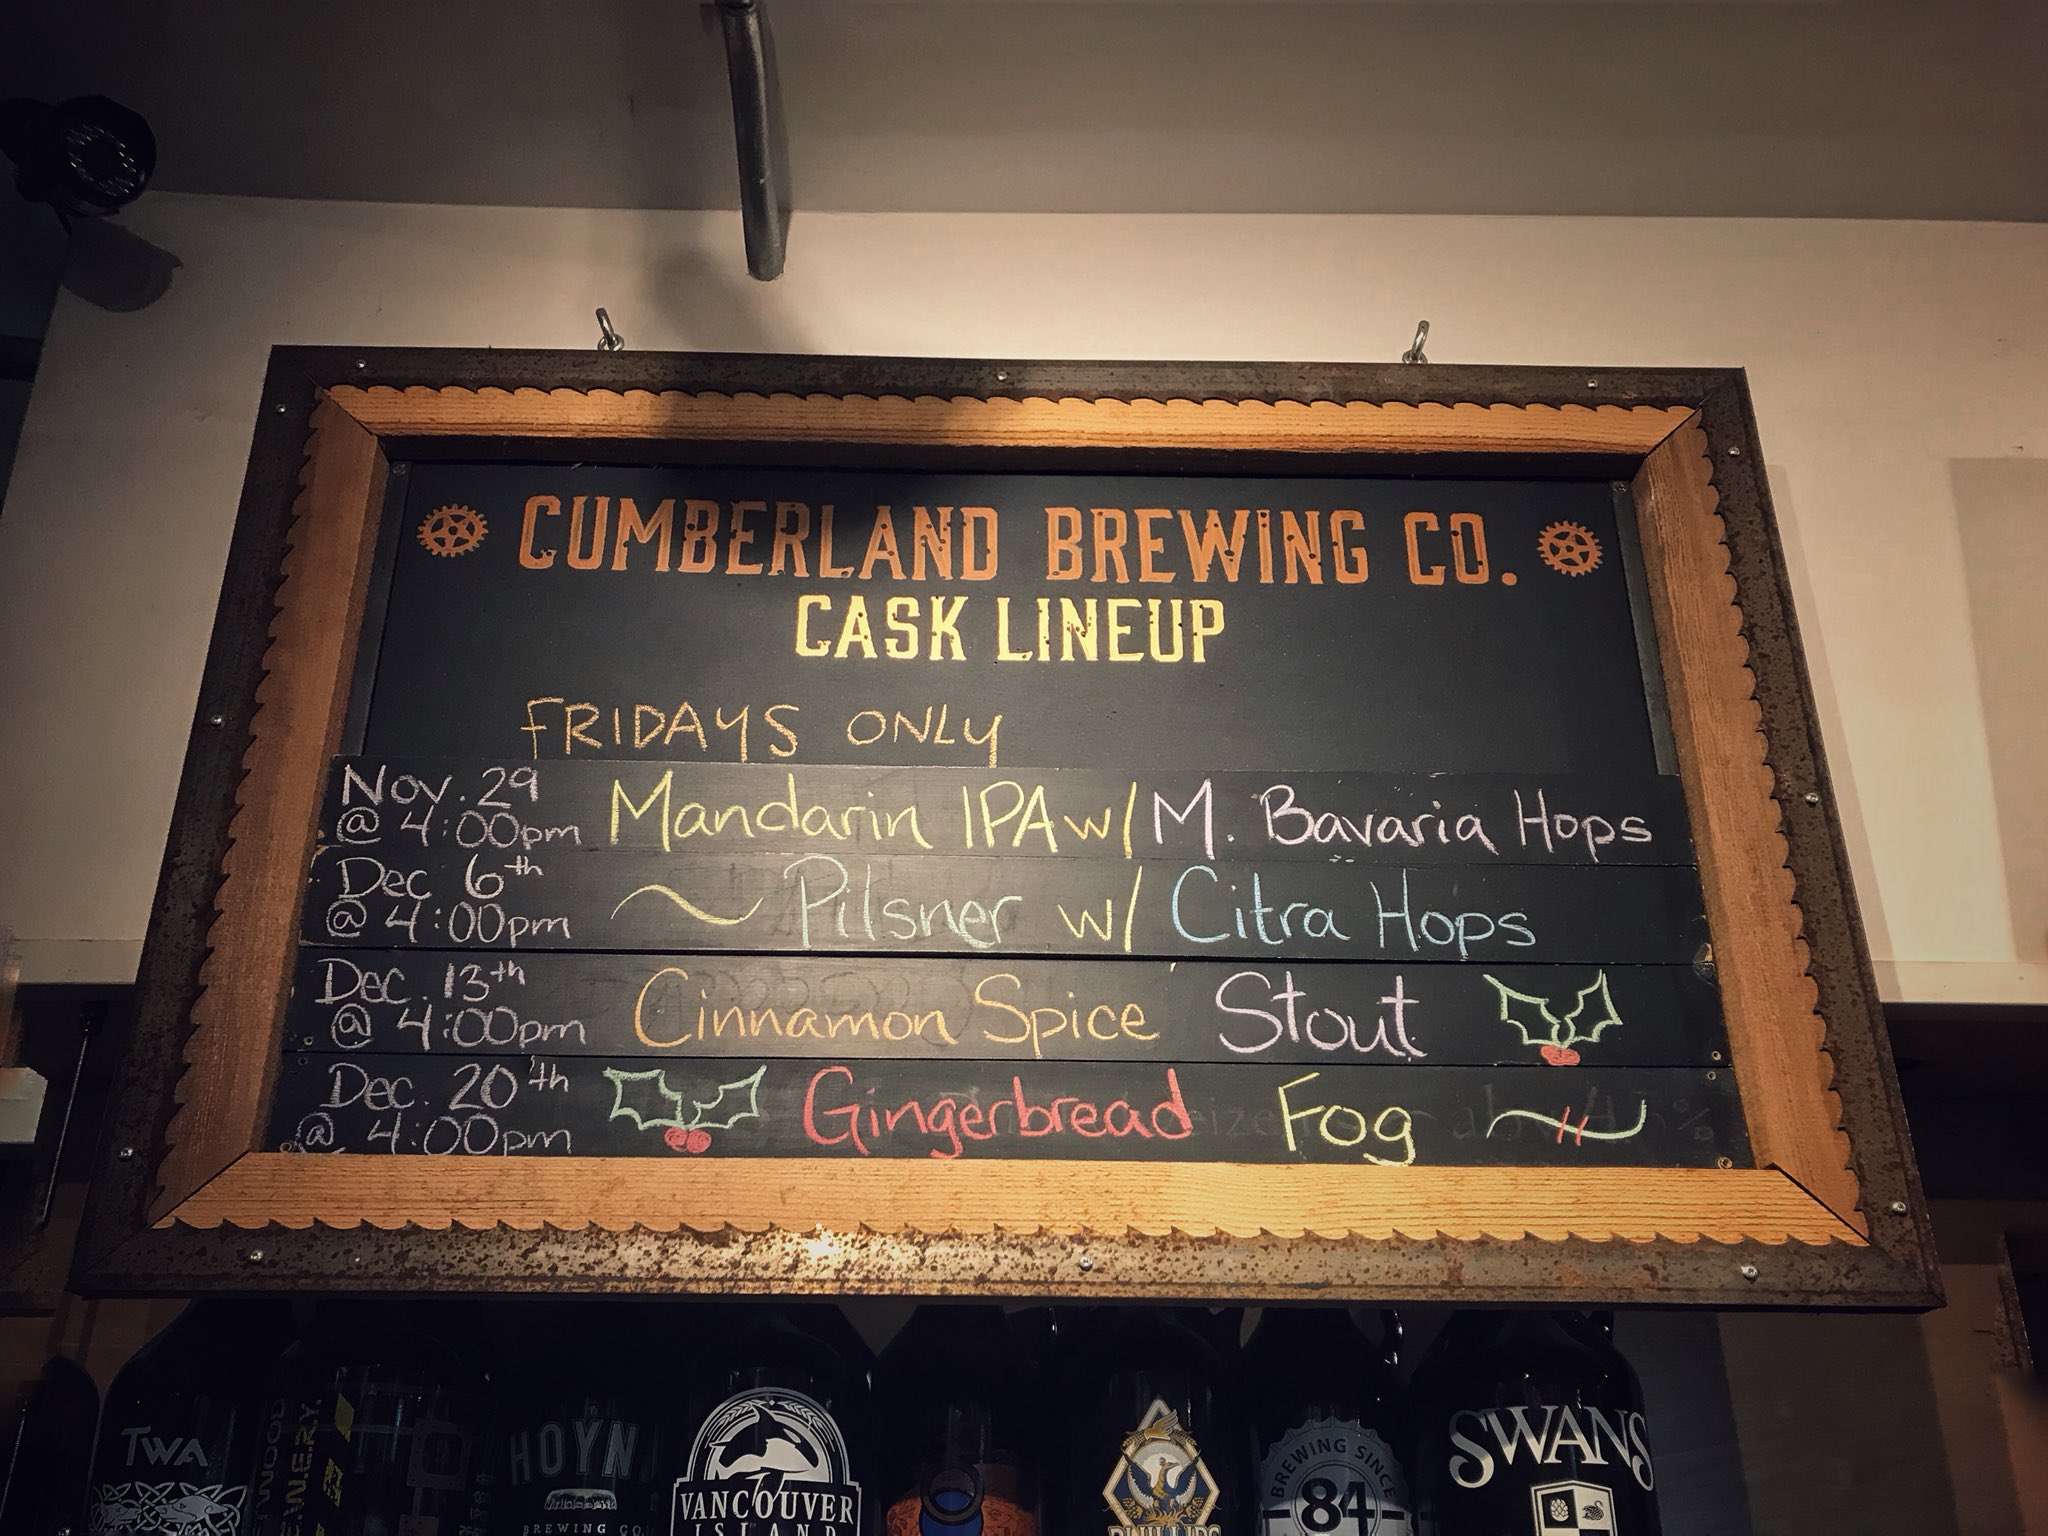 CUMBERLAND BREWING CO.
CASK LINEUP
FRIDAYS ONLY
Nov. 29 @ 4:00pm Mandarin IPA w/ M. Bavaria Hops
Dec 6th @ 4:00pm ~ Pilsner w/ Citra Hops
Dec. 13th @ 4:00pm Cinnamon Spice Stout
Dec. 20th @ 4:00pm Gingerbread Fog
TWA
HOYN
BREWING CO
VANCOUVER
ISLAND
PHILLIPS
BREWING SINCE
84
SWANS